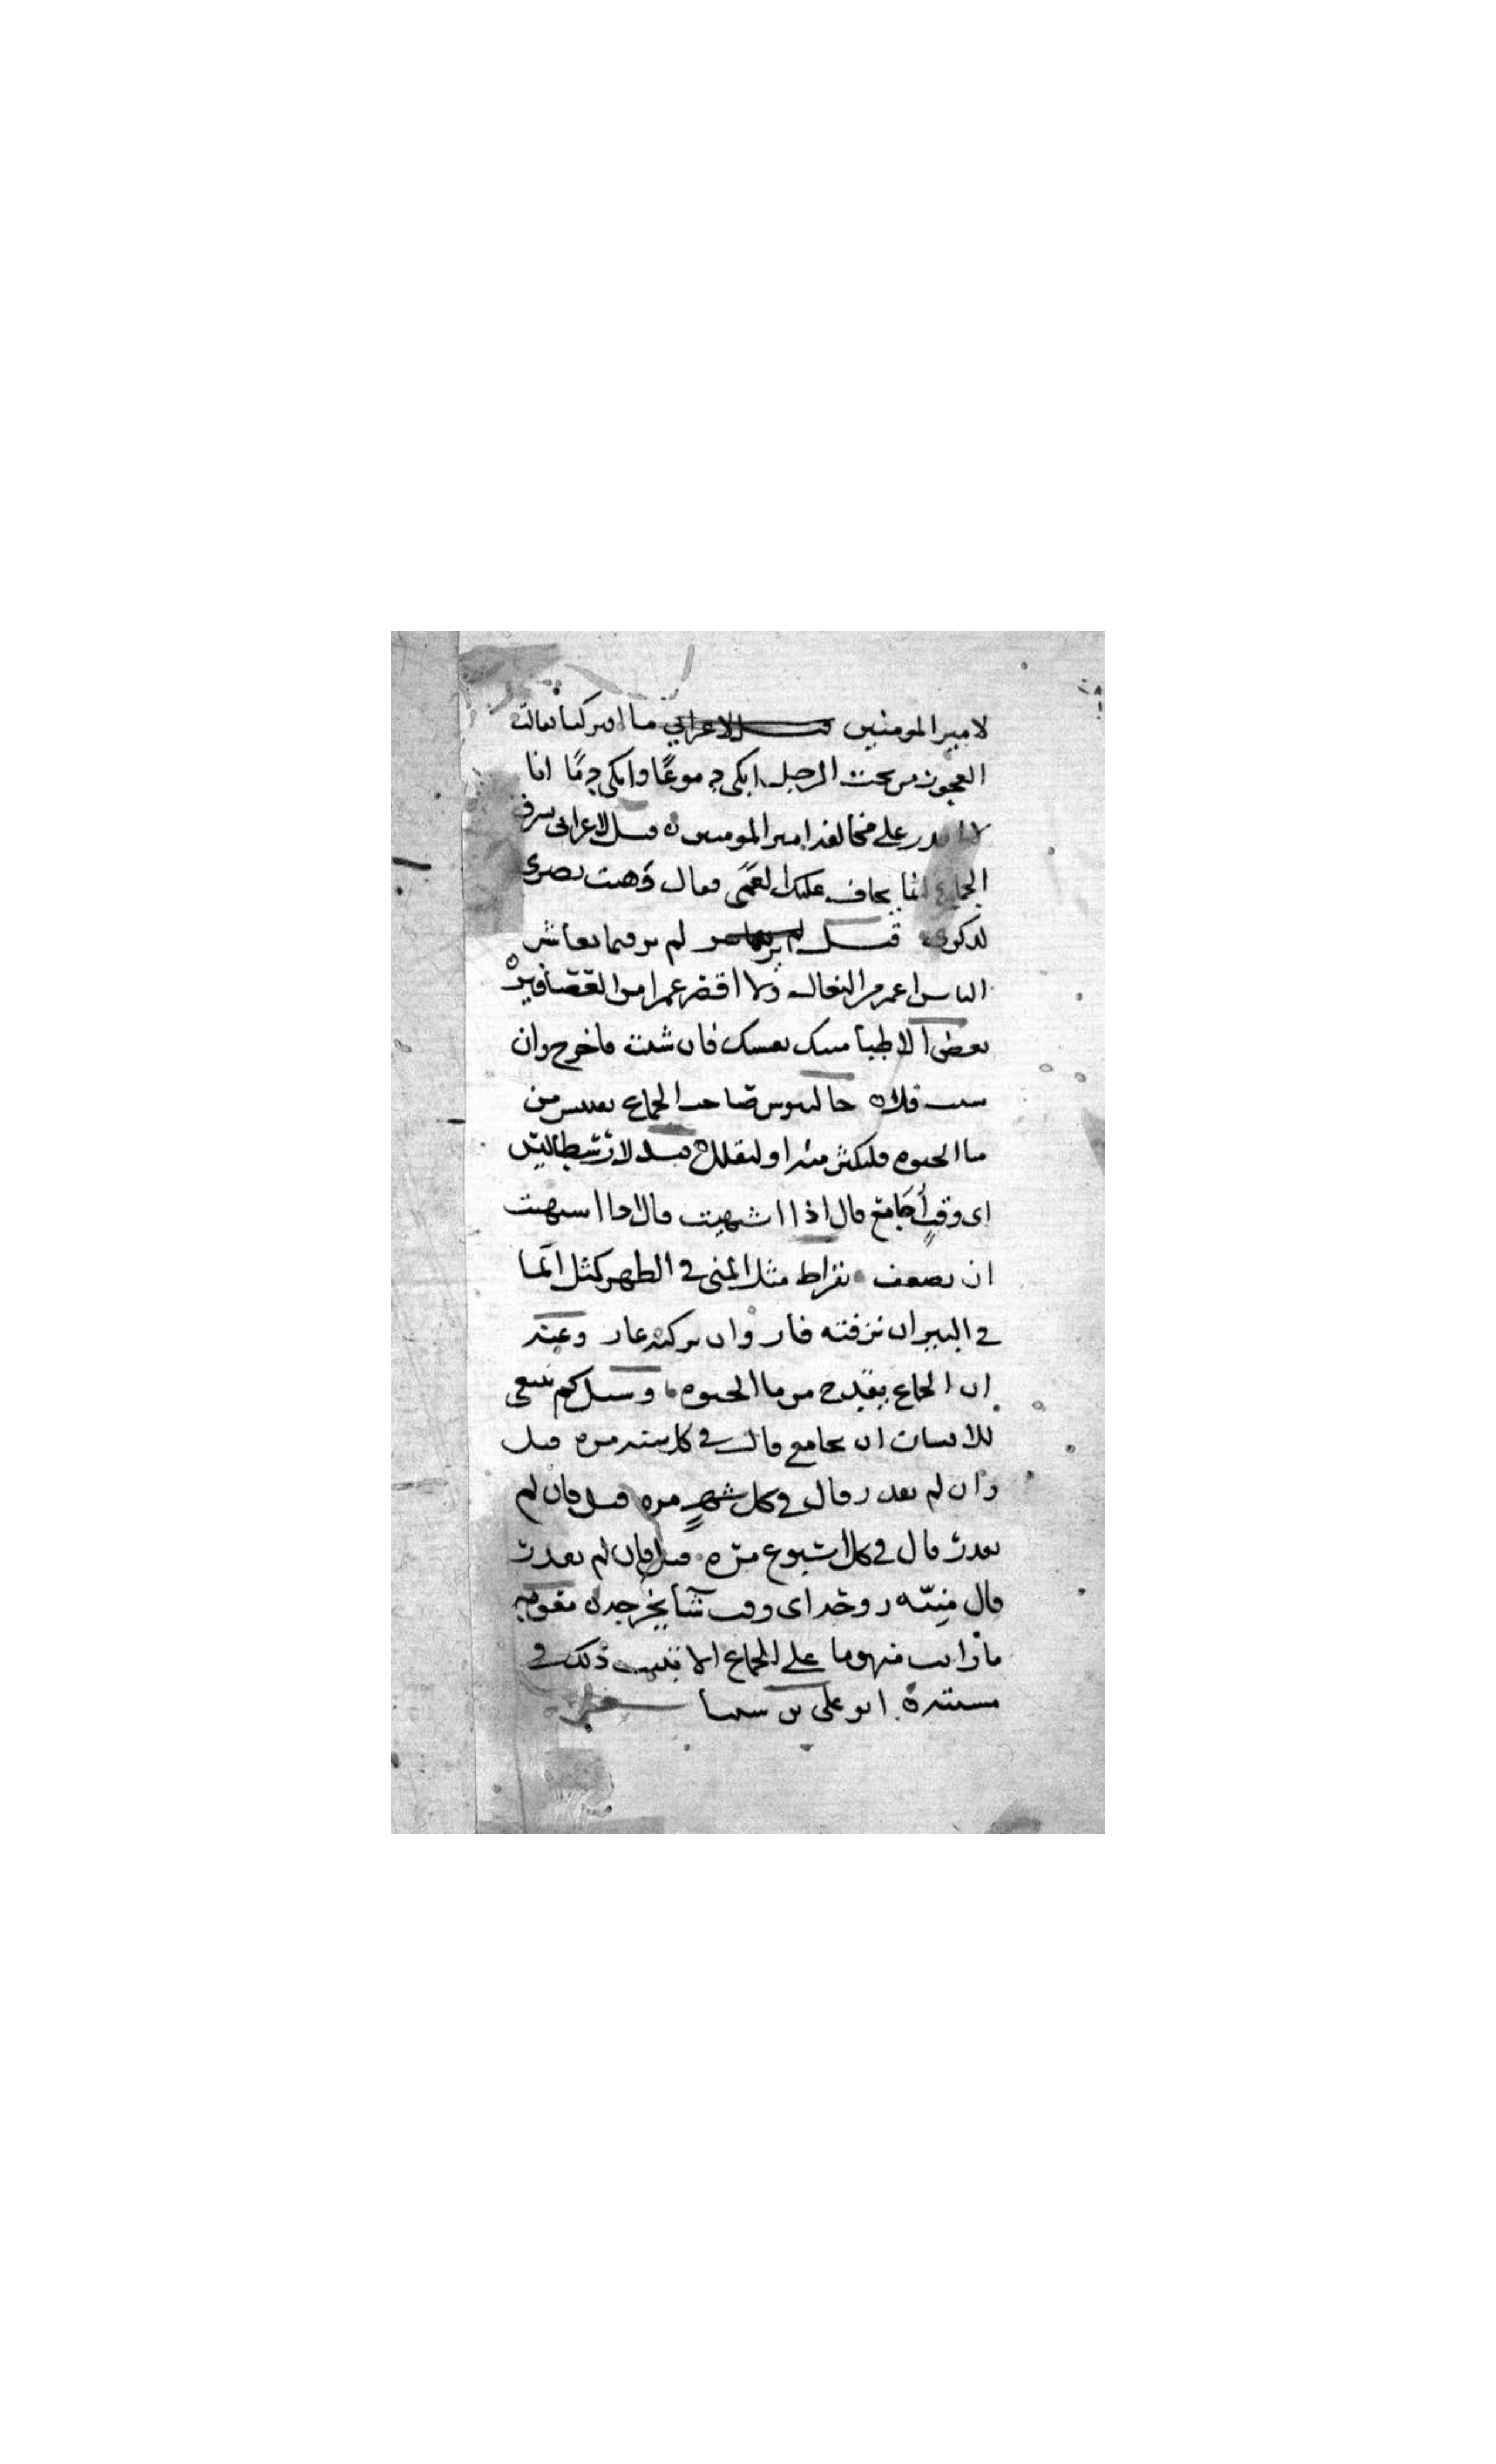 لامير المومنين ما امركما فقالت
العجوز من تحت الرجل ابكى دموعًا وابكى دمًا انا
لا اقدر على مخالفة امير المومنين ه قيل لاعرابى
الجماع انا نخاف عليك العمى فقال ذهبت بصرى
لذكرى قيل لم ير فيما يعاشر
الناس اعمر من البغال ولا اقصر عمرا من العصافير ه
بعض الاطبا منيك نفسك فان شئت فاخرج وان
شئت فلا ه جالينوس صاحب الجماع يقتبس من
ما الحيوه فليكثر منه او ليقلل ه قيل لارسطاليس
اى وقتٍ أجَامع قال اذا اشتهيت قال اذا اشتهيت
ان تضعف ه بقراط مثل المنى فى الظهر كمثل الما
فى البير ان نزفته فار وان تركته غار وعنه
ان الجماع يقدح من ما الحيوه ه وسيل كم ينبغى
للانسان ان يجامع قال فى كل سنة مره قيل
وان لم يقدر قال فى كل شهرٍ مره قيل فان لم
يقدر قال فى كل اسبوع مره ه قيل فان لم يقدر
قال منيّه روحه اى وقت شا يخرجه ه
ما رايت منهوما على الجماع الا تبينت ذلك فى
ابو على بن سينا